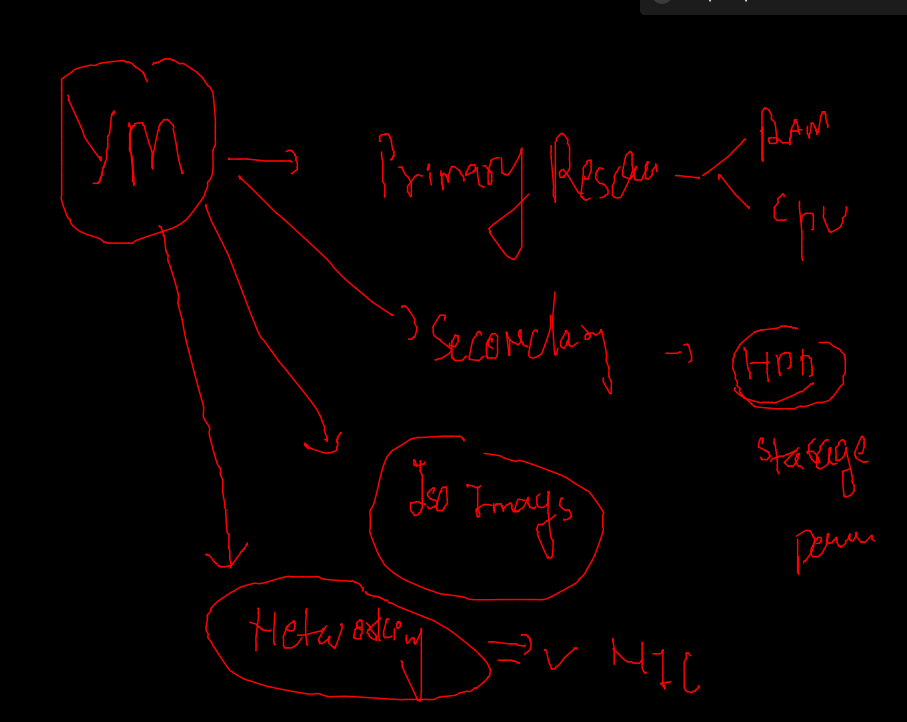 VM
Primary Resou
RAM
CPU
Secondary
HDD
Storage
ISO Images
Networking
V NIC